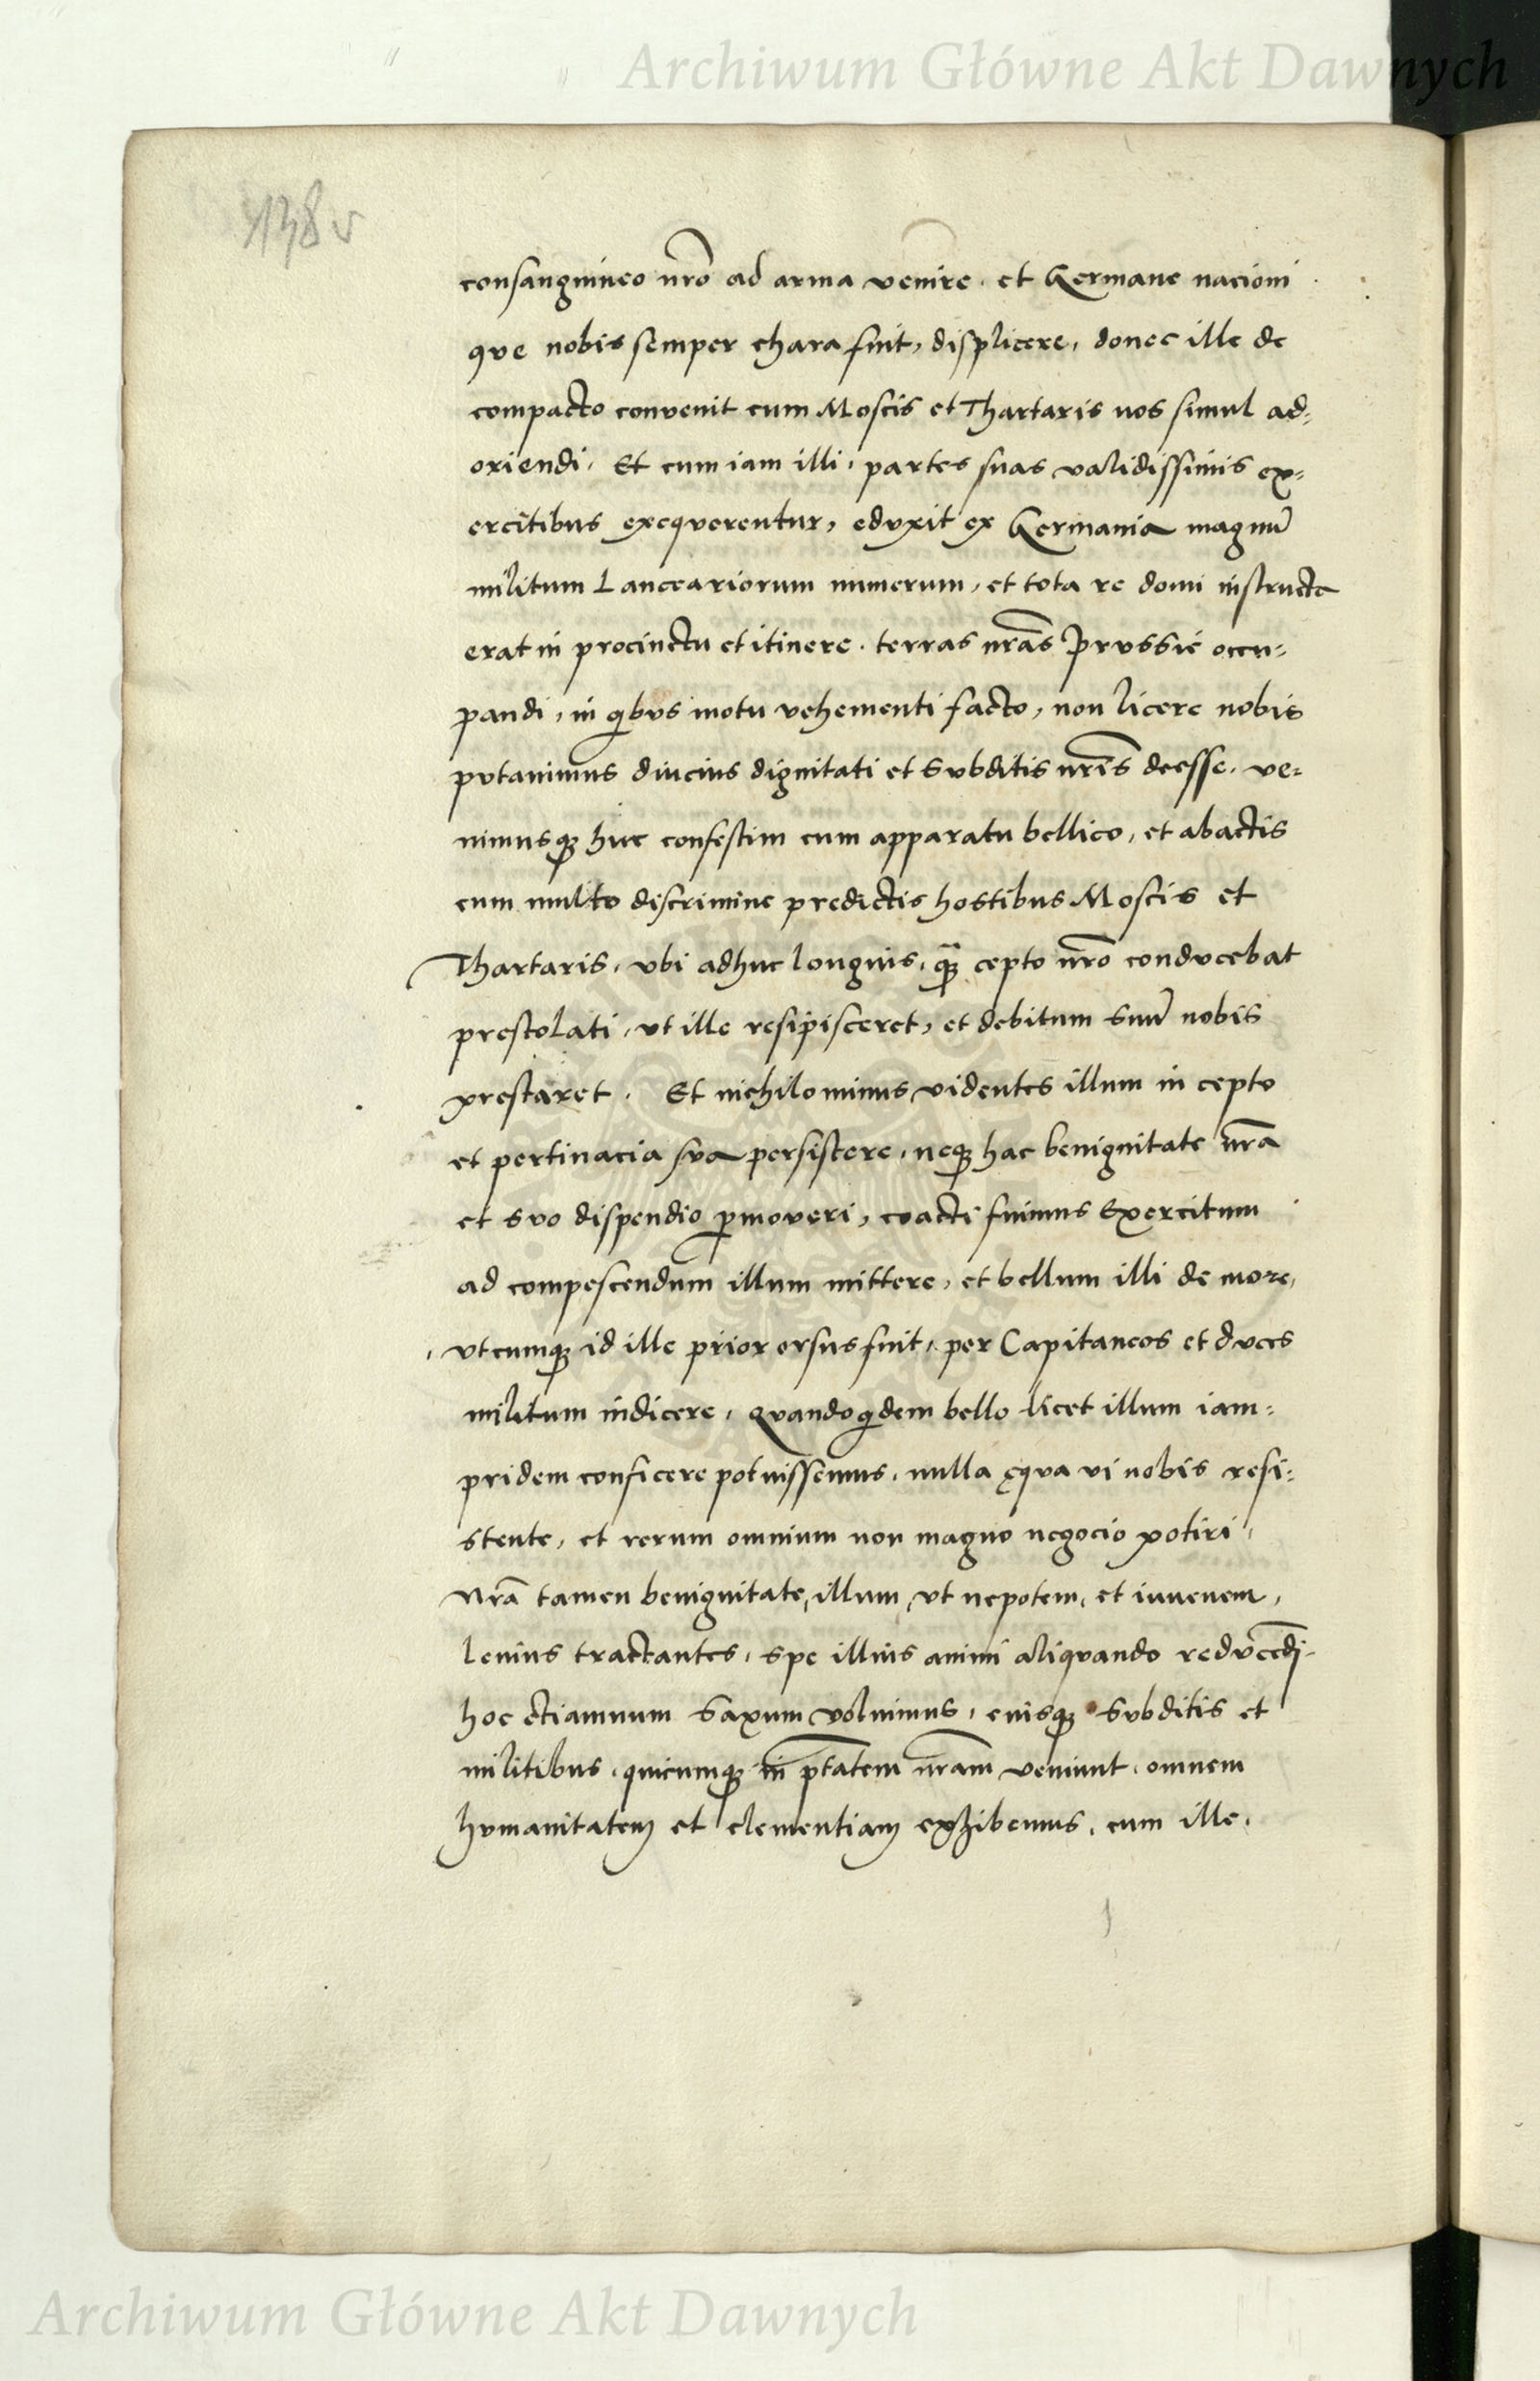 Archiwum Główne Akt Dawnych
138 v
consanguineo nr̄o ad arma venire. et Germane nacioni
que nobis semper chara fuit, displicere, donec ille de
compacto convenit cum Moscis et Thartaris nos simul ad=
oriendi. Et cum iam illi, partes suas validissimis ex=
ercitibus exequerentur, eduxit ex Germania magnū
militum Lanceariorum numerum, et tota re domi instructa
erat in procinctu et itinere. terras nr̄as Prvssie occu=
pandi, in qibvs motu vehementi facto, non licere nobis
pvtavimus diucius dignitati et svbditis nr̄is deesse. ve=
nimusq₃ huc confestim cum apparatu bellico, et abactis
cum multo discrimine predictis hostibus Moscis et
Thartaris, vbi adhuc longius, q̄₃ cepto nr̄o condvcebat
prestolati, vt ille resipisceret, et debitum suū nobis
prestaret. Et nichilominus videntes illum in cepto
et pertinacia sva persistere, neq₃ hac benignitate nr̄a
et svo dispendio ꝑmoveri, coacti fuimus Exercitum
ad compescendum illum mittere, et bellum illi de more,
vtcumq₃ id ille prior orsus fuit, per Capitaneos et dvces
militum indicere, Qvandoqidem bello licet illum iam=
pridem conficere potuissemus, nulla ęqva vi nobis resi=
stente, et rerum omnium non magno negocio potiri,
Nr̄a tamen benignitate, illum, vt nepotem, et iuvenem,
lenius tractantes, spe illius animi aliqvando redvcēdi
hoc etiamnum saxum volvimus, eiusq₃ svbditis et
militibus, quicumq₃ in ptātem nr̄am veniunt, omnem
hvmanitatem et clementiam exhibemus, cum ille,
Archiwum Główne Akt Dawnych